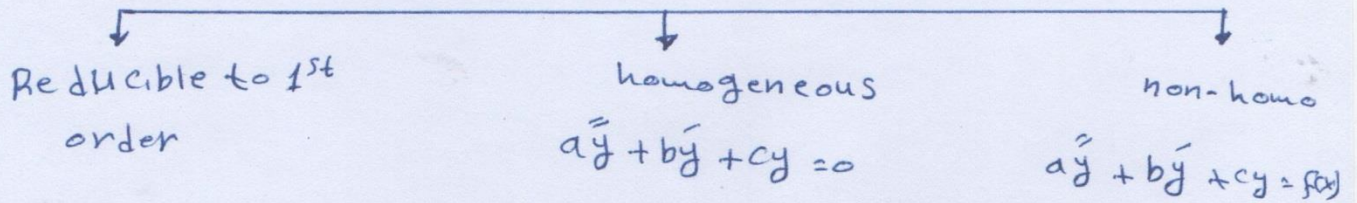 Reducible to 1st order
homogeneous
ay̿ + by̅ + cy = 0
non-homo
ay̿ + by̅ + cy = f(x)